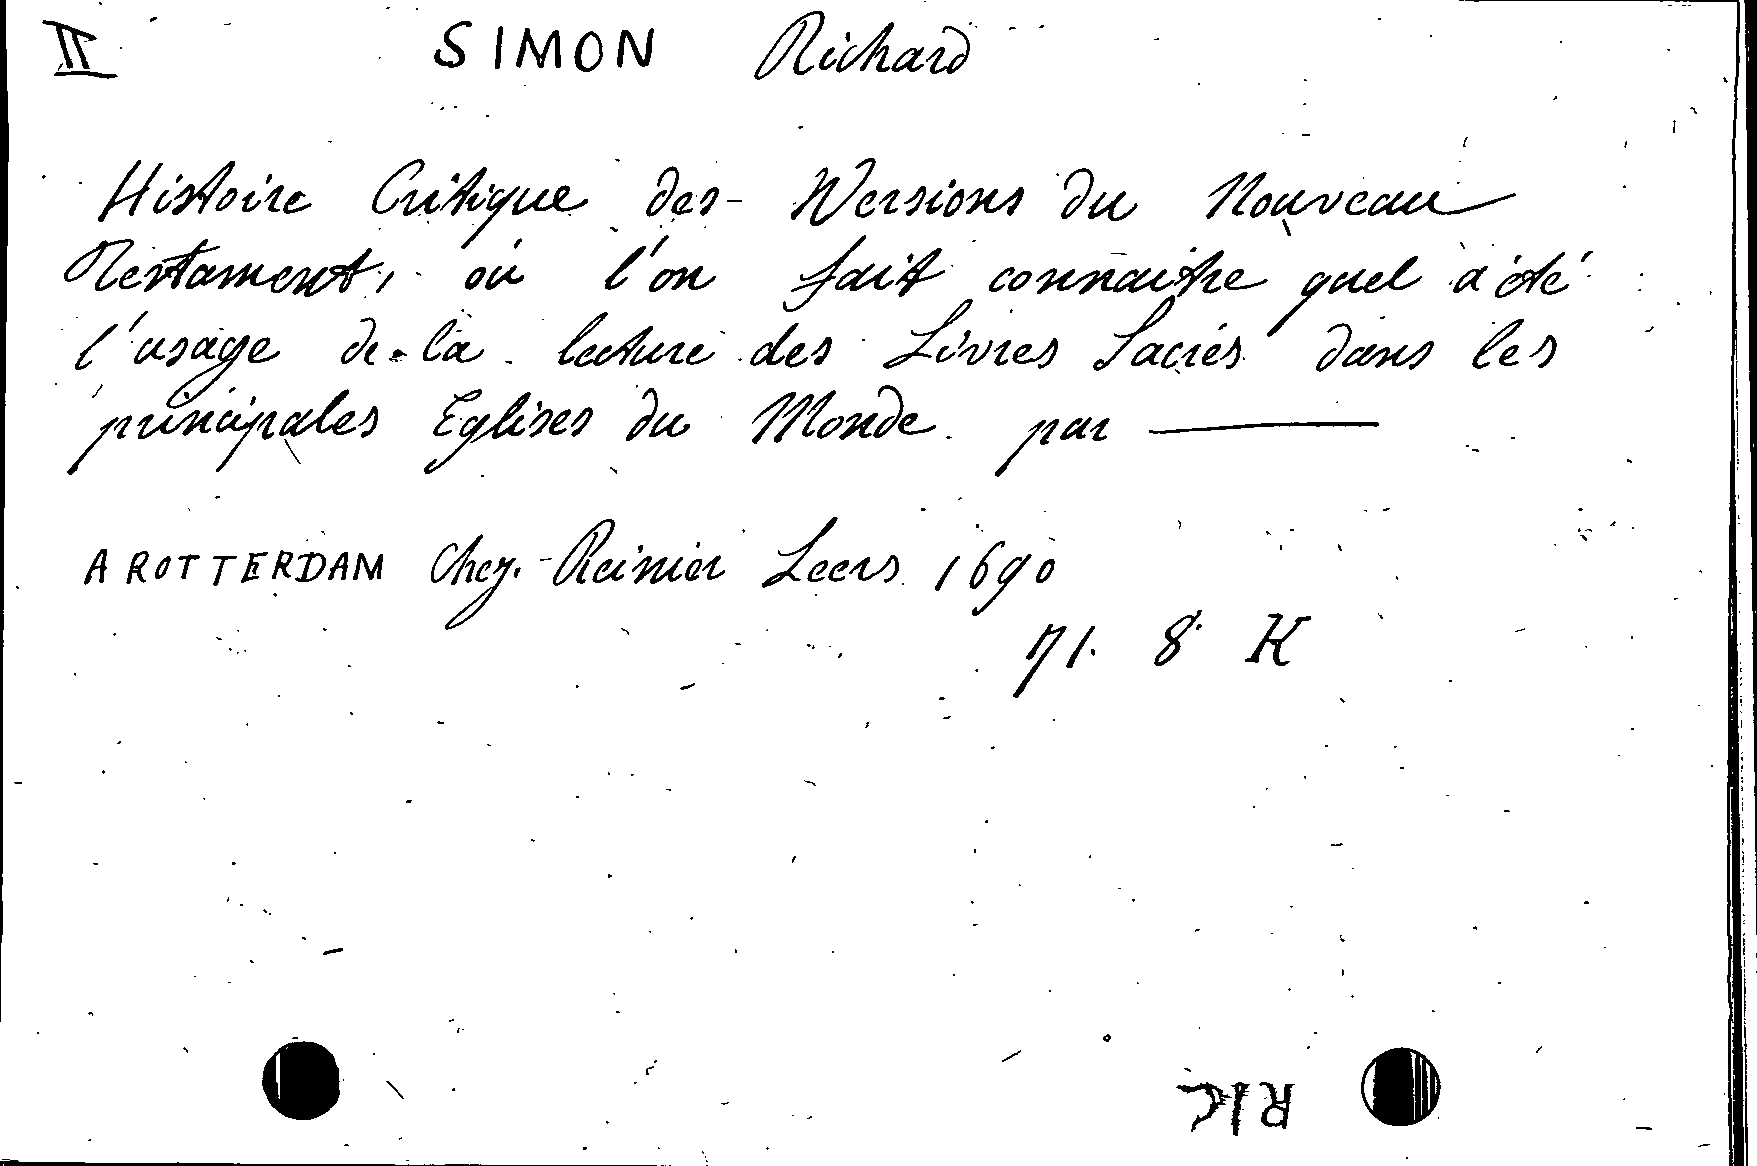 II SIMON Richard
Histoire Critique des Versions du Nouveau
Testament, où l'on fait connaitre quel a été
l'usage de la lecture des Livres Sacrés dans les
principales Eglises du Monde. par ———
A ROTTERDAM Chez Reinier Leers 1690
71. 8° K
RIC